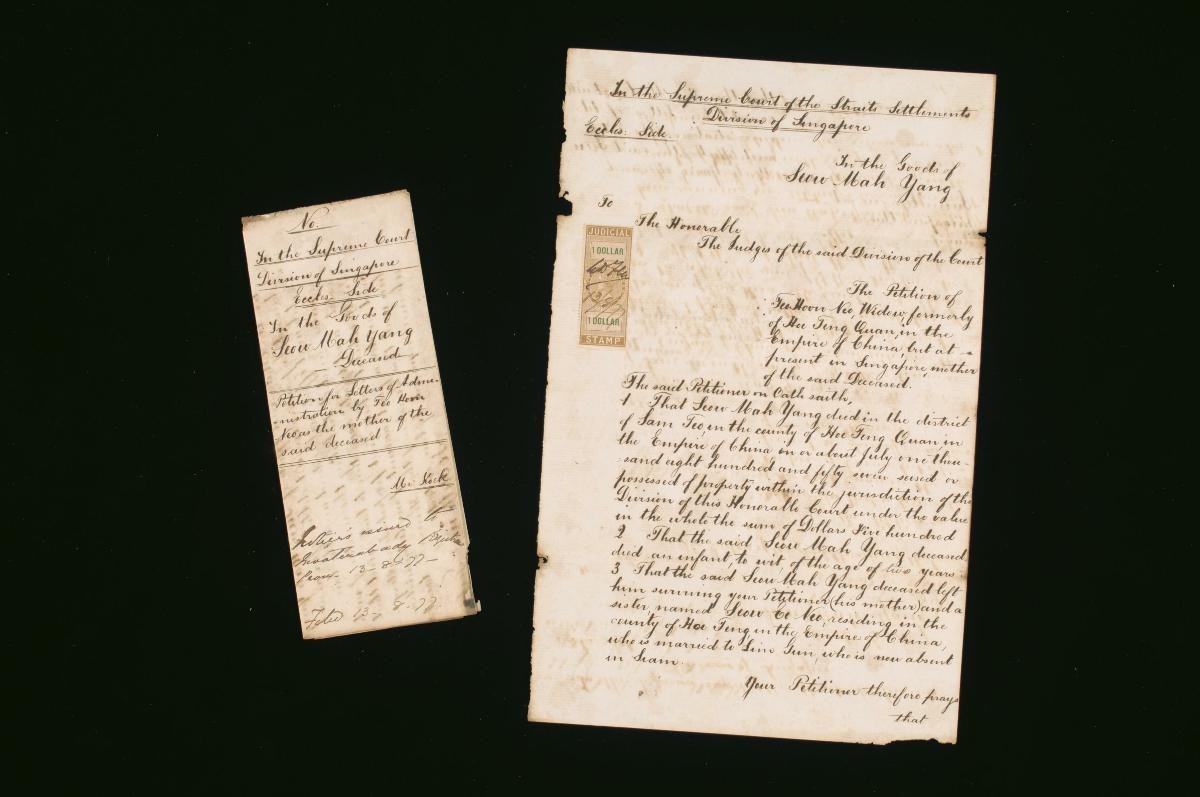 No.
In the Supreme Court
Division of Singapore
Eccles: Side
In the Goods of
Seow Mah Yang
Deceased
Petition for Letters of Admi-
nistration by Teo Hoon
Neo as the mother of the
said deceased
Mr. Kock
13-8-77-
Filed 13. 8. 77.
In the Supreme Court of the Straits Settlements
Division of Singapore
Eccles: Side.
In the Goods of
Seow Mah Yang
To
The Honorable
The Judges of the said Division of the Court
JUDICIAL
1 DOLLAR
13/8/77
1 DOLLAR
STAMP
The Petition of
Teo Hoon Neo, Widow, formerly
of Hoe Teng Quan, in the
Empire of China, but at
present in Singapore, mother
of the said Deceased.
The said Petitioner on Oath saith,
1 That Seow Mah Yang died in the district
of Sam Teo, in the county of Hoe Teng Quan in
the Empire of China on or about July one thou-
-sand eight hundred and fifty seven seised or
possessed of property within the jurisdiction of the
Division of this Honorable Court under the value
in the whole the sum of Dollars Five hundred
2 That the said Seow Mah Yang deceased
died an infant, to wit, of the age of two years
3 That the said Seow Mah Yang deceased left
him surviving your Petitioner (his mother) and a
sister, named Seow Ee Neo, residing in the
county of Hoe Teng in the Empire of China,
who is married to Lim Gun, who is now absent
in Siam.
Your Petitioner therefore prays
that